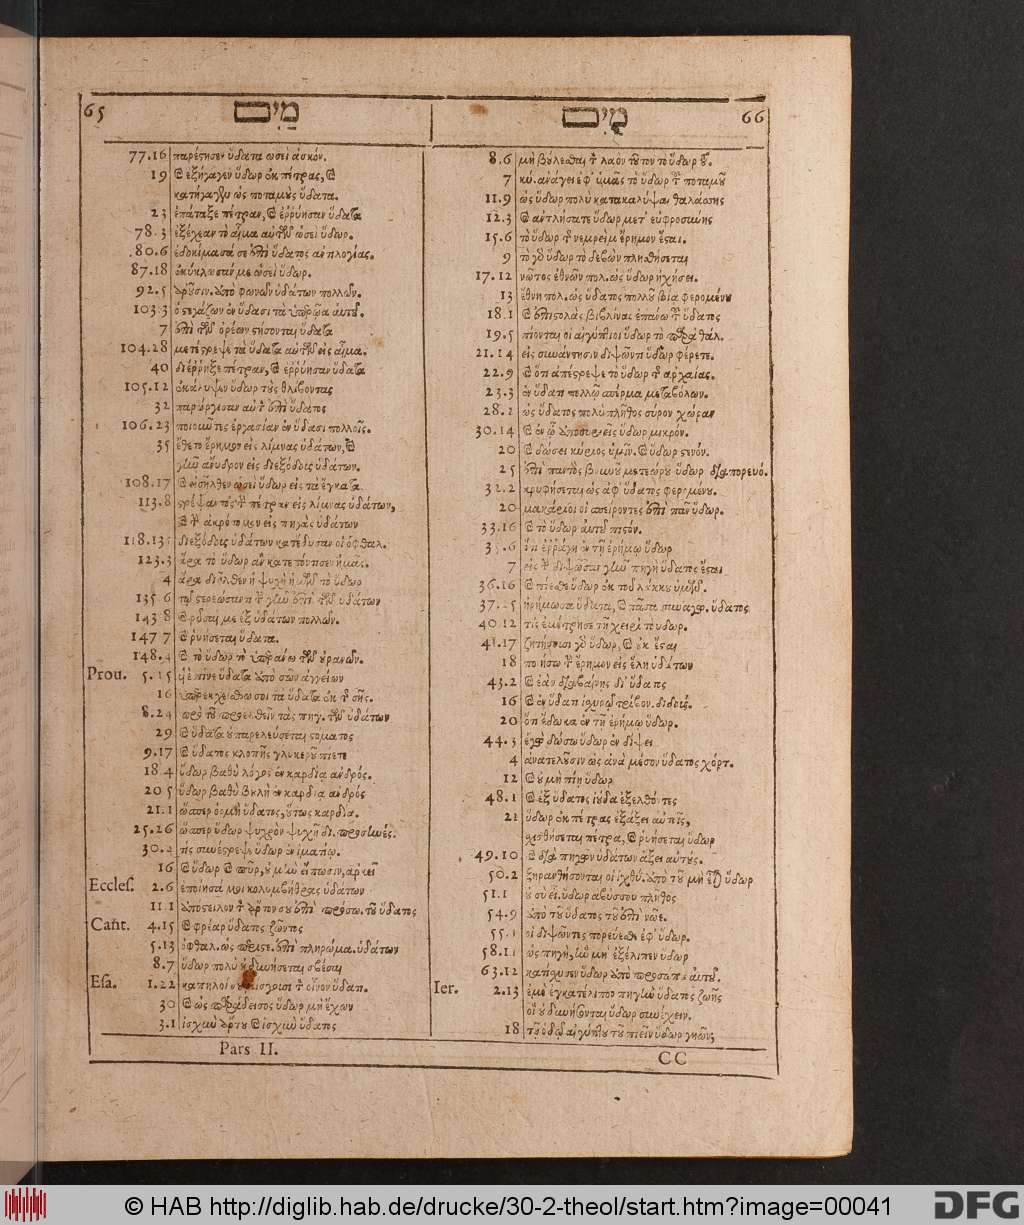 65 מַיִם
77.16 παρέστησεν ὕδατα ὡσεὶ ἀσκόν.
19 καὶ ἐξήγαγεν ὕδωρ ἐκ πέτρας, καὶ
κατήγαγεν ὡς ποταμοὺς ὕδατα.
23 ἐπάταξε πέτραν, καὶ ἐῤῥύησαν ὕδατα
78.3 ἐξέχεαν τὸ αἷμα αὐτῶν ὡσεὶ ὕδωρ.
80.6 ἐδοκίμασά σε ἐπὶ ὕδατος ἀντιλογίας.
87.18 ἐκύκλωσάν με ὡσεὶ ὕδωρ.
92.5 ἀπὸ φωνῶν ὑδάτων πολλῶν.
103.3 ὁ στεγάζων ἐν ὕδασι τὰ ὑπερῷα αὐτοῦ.
7 ἐπὶ τῶν ὀρέων στήσονται ὕδατα
104.28 μετέστρεψε τὰ ὕδατα αὐτῶν εἰς αἷμα.
40 διέῤῥηξε πέτραν, καὶ ἐῤῥύησαν ὕδατα
105.12 ἐκάλυψεν ὕδωρ τοὺς θλίβοντας
32 παρώργισαν αὐτὸν ἐπὶ ὕδατος
106.23 ποιοῦντες ἐργασίαν ἐν ὕδασι πολλοῖς.
35 ἔθετο ἔρημον εἰς λίμνας ὑδάτων, καὶ
γῆν ἄνυδρον εἰς διεξόδοις ὑδάτων.
108.17 καὶ εἰσῆλθεν ὡσεὶ ὕδωρ εἰς τὰ ἔγκατα.
113.8 στρέψαντος τὴν πέτραν εἰς λίμνας ὑδάτων,
καὶ τὴν ἀκρότομον εἰς πηγὰς ὑδάτων
118.135 διεξόδοις ὑδάτων κατέδυσαν οἱ ὀφθαλ.
123.3 ἄρα τὸ ὕδωρ ἂν κατεπόντισεν ἡμᾶς.
4 ἄρα διῆλθεν ἡ ψυχὴ ἡμῶν τὸ ὕδωρ
135 6 τῷ στερεώσαντι τὴν γῆν ἐπὶ τῶν ὑδάτων
143 8 καὶ ῥῦσαι με ἐξ ὑδάτων πολλῶν.
147 7 καὶ ῥυήσεται ὕδατα.
148.4 καὶ τὸ ὕδωρ τὸ ὑπεράνω τῶν οὐρανῶν.
Prou. 5.15 πῖνε ὕδατα ἀπὸ σῶν ἀγγείων
16 ὑπερεκχείσθω σοι τὰ ὕδατα ἐκ τῆς σῆς.
8.24 πρὸ τοῦ προελθεῖν τὰς πηγ. τῶν ὑδάτων
29 καὶ ὕδατα οὐ παρελεύσεται στόματος
9.17 καὶ ὕδατος κλοπῆς γλυκεροῦ πίετε
18 4 ὕδωρ βαθὺ λόγος ἐν καρδίᾳ ἀνδρός.
20 5 ὕδωρ βαθὺ βουλὴ ἐν καρδίᾳ ἀνδρός
21.1 ὥσπερ ὁρμὴ ὕδατος, οὕτως καρδία.
25.26 ὥσπερ ὕδωρ ψυχρὸν ψυχῇ δι. προσηνές.
30.4 τίς συνέστρεψε ὕδωρ ἐν ἱματίῳ.
16 καὶ ὕδωρ καὶ πῦρ, οὐ μὴ εἴπωσιν, ἀρκεῖ
Eccles. 2.6 ἐποίησά μοι κολυμβήθρας ὑδάτων
11.1 ἀπόστειλον τὸν ἄρτον σου ἐπὶ πρόσω. τοῦ ὕδατος
Cant. 4.15 καὶ φρέαρ ὕδατος ζῶντος
5.13 ὀφθαλ. ὡς περιστε. ἐπὶ πληρώμα. ὑδάτων
8.7 ὕδωρ πολὺ οὐ δυνήσεται σβέσαι
Esa. 1.22 κάπηλοί σου μίσγουσι τὸν οἶνον ὕδατι.
30 καὶ ὡς παράδεισος ὕδωρ μὴ ἔχων
3.1 ἰσχὺν ἄρτου καὶ ἰσχὺν ὕδατος
Pars II.
מַיִם 66
8.6 μὴ βούλεσθαι τὸν λαὸν τοῦτον τὸ ὕδωρ τοῦ.
7 κύ. ἀνάγει ἐφ' ὑμᾶς τὸ ὕδωρ τοῦ ποταμοῦ
11.9 ὡς ὕδωρ πολὺ κατακαλύψαι θαλάσσης
12.3 καὶ ἀντλήσατε ὕδωρ μετ' εὐφροσύνης
15.6 τὸ ὕδωρ τῆς νεμρεὶμ ἔρημον ἔσται.
9 τὸ γὰρ ὕδωρ τὸ δεβὼν πλησθήσεται
17.12 νῶτος ἐθνῶν πολ. ὡς ὕδωρ ἠχήσει.
13 ἔθνη πολ. ὡς ὕδατος πολλοῦ βίᾳ φερομένου
18.1 καὶ ἐπιστολὰς βιβλίνας ἐπάνω τοῦ ὕδατος
19.5 πίονται οἱ αἰγύπτιοι ὕδωρ τὸ παρὰ θάλ.
21.14 εἰς συνάντησιν διψῶντι ὕδωρ φέρετε.
22.9 καὶ ὅτι ἀπέστρεψε τὸ ὕδωρ τῆς ἀρχαίας.
23.3 ἐν ὕδατι πολλῷ σπέρμα μεταβόλων.
28.2 ὡς ὕδατος πολὺ πλῆθος σύρον χώραν
30.14 καὶ ἐν ᾧ ἀποσυριεῖς ὕδωρ μικρόν.
20 καὶ δώσει κύριος ὑμῖν. καὶ ὕδωρ στενόν.
25 ἐπὶ παντὸς βουνοῦ μετεώρου ὕδωρ διαπορευό.
32.2 κρυφήσεται ὡς ἀφ' ὕδατος φερομένου.
20 μακάριοι οἱ σπείροντες ἐπὶ πᾶν ὕδωρ.
33.16 καὶ τὸ ὕδωρ αὐτοῦ πιστόν.
35.6 ὅτι ἐῤῥάγη ἐν τῇ ἐρήμῳ ὕδωρ
7 εἰς τὴν διψῶσαν γῆν πηγὴ ὕδατος ἔσται
36.16 καὶ πίεσθε ὕδωρ ἐκ τοῦ λάκκου ὑμῶν.
37.25 ἠρήμωσα ὕδατα, καὶ πᾶσαν συναγω. ὕδατος
40.12 τίς ἐμέτρησε τῇ χειρὶ τὸ ὕδωρ.
41.17 ζητήσουσι γὰρ ὕδωρ, καὶ οὐκ ἔσται
18 ποιήσω τὴν ἔρημον εἰς ἕλη ὑδάτων
43.2 καὶ ἐὰν διαβαίνῃς δι' ὕδατος
16 καὶ ἐν ὕδατι ἰσχυρῷ τρίβον. διδούς.
20 ὅτι ἔδωκα ἐν τῇ ἐρήμῳ ὕδωρ.
44.3 ἐγὼ δώσω ὕδωρ ἐν δίψει
4 ἀνατελοῦσιν ὡς ἀνὰ μέσον ὕδατος χόρτ.
12 καὶ οὐ μὴ πίῃ ὕδωρ
48.1 καὶ ἐξ ὕδατος ἰούδα ἐξελθόντες
21 ὕδωρ ἐκ πέτρας ἐξάξει αὐτοῖς,
σχισθήσεται πέτρα, καὶ ῥυήσεται ὕδωρ
49.10 καὶ διὰ πηγῶν ὑδάτων ἄξει αὐτούς.
50.2 ξηρανθήσονται οἱ ἰχθύ. ἀπὸ τοῦ μὴ εἶναι ὕδωρ
51.1 ὕδωρ ἀβύσσου πλῆθος
54.9 ἀπὸ τοῦ ὕδατος τοῦ ἐπὶ νῶε.
55.1 οἱ διψῶντες πορεύεσθε ἐφ' ὕδωρ.
58.11 ὡς πηγὴ, ἣν μὴ ἐξέλιπεν ὕδωρ
63.12 κατίσχυσεν ὕδωρ ἀπὸ προσώπου αὐτοῦ.
Ier. 2.13 ἐμὲ ἐγκατέλιπον πηγὴν ὕδατος ζωῆς
οἳ οὐ δυνήσονται ὕδωρ συνέχειν.
18 τῇ ὁδῷ αἰγύπτου τοῦ πιεῖν ὕδωρ γηῶν;
CC
© HAB http://diglib.hab.de/drucke/30-2-theol/start.htm?image=00041
DFG